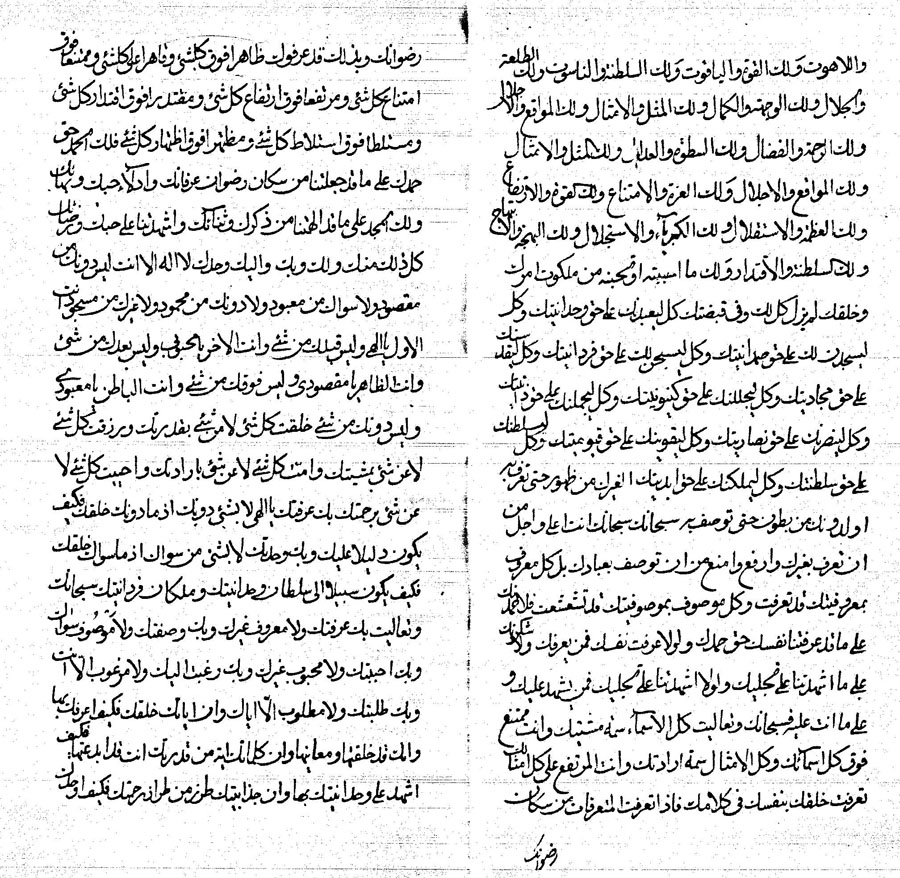 واللاهوت ولك القوة والياقوت ولك السلطنة والناسوت ولك الطلعة
والجلال ولك الوجهة والكمال ولك المثل والامثال ولك المواقع والاجلال
ولك الرحمة والفضال ولك السطوة والعدال ولك المثل والامثال
ولك المواقع والاجلال ولك العزة والامتناع ولك القوة والارتفاع
ولك العظمة والاستقلال ولك الكبرياء والاستجلال ولك البهجة والابتهاج
ولك السلطنة والاقتدار ولك ما احببته او تحبنه من ملكوت امرك
وخلقك لم يزل كل لك وفى قبضتك كل ليعبدنك على حق وحدانيتك وكل
ليسجدن لك على حق صمدانيتك وكل ليسبحن لك على حق فردانيتك وكل ليقدسنك
على حق مجاديتك وكل ليجللنك على حق كينونيتك وكل ليجملنك على حق ذاتيتك
وكل لينصرنك على حق نصاريتك وكل ليقوينك على حق قيوميتك وكل ليسلطنك
على حق سلطنتك وكل ليملكنك على حق ابديتك الغيرك من ظهور حتى تعرف به
او لدونك من بطون حتى توصف به سبحانك سبحانك انت اعلى واجل من
ان تعرف بغيرك وارفع وامنع من ان توصف بعبادك بل كل معروف
بمعروفيتك قد تعرفت وكل موصوف بموصوفيتك قد تشعشعت فلاحمدنك
على ما قد عرفتنا نفسك حق حمدك ولولا عرفت نفسك فمن يعرفك ولاشكرنك
على ما اشهدتنا على تجليك ولولا اشهدتنا على تجليك فمن يشهد عليك و
على ما انت عليه فسبحانك وتعاليت كل الاسماء سمة مشيتك وانت ممتنع
فوق كل اسمائك وكل الامثال سمة ارادتك وانت المرتفع على كل امثالك
تعرفت خلقك بنفسك فى كلامك فاذا تعرفت المتعرفات من سكان
رضوانك
رضوانك وبذلك قد عرفوك ظاهرا فوق كلشئ وقاهرا على كلشئ وممتنعا فوق
امتناع كل شئ ومرتفعا فوق ارتفاع كل شئ ومقتدرا فوق اقتدار كل شئ
ومستلطا فوق استلاط كل شئ ومظهرا فوق اظهار كل شئ فلك الحمد حق
حمدك على ما قد جعلتنا من سكان رضوان عرفانك وادلاء حبك وبهائك
ولك المجد على ما قد الهمتنا من ذكرك وثنائك واشهدتنا على حبك ورضائك
كل ذلك منك ولك وبك واليك وحدك لا اله الا انت ليس دونك من
مقصود ولا سواك من معبود ولا دونك من محمود ولا غيرك من مسجود انت
الاول يا الهى وليس قبلك من شئ وانت الاخر يا محبوبى وليس بعدك من شئ
وانت الظاهر يا مقصودى وليس فوقك من شئ وانت الباطن يا معبودى
وليس دونك من شئ خلقت كل شئ لا من شئ بقدرتك ورزقت كل شئ
لا عن شئ بمشيتك وامت كل شئ لا عن شئ بارادتك واحييت كل شئ لا
عن شئ برحمتك بك عرفتك يا الهى لا بشئ دونك اذ ما دونك خلقك فكيف
يكون دليلا عليك وبك وحدتك لا بشئ من سواك اذ ما سواك خلقك
فكيف يكون سبيلا الى سلطان وحدانيتك ومليكان فردانيتك سبحانك
وتعاليت بك عرفتك ولا معروف غيرك وبك وصفتك ولا موصوف سواك
وبك احببتك ولا محبوب غيرك وبك رغبت اليك ولا مرغوب الا انت
وبك طلبتك ولا مطلوب الا اياك وان اياتك خلقك فكيف اعرفك بها
وانك قد خلقتها ومعانيها وان كلماتك اية من قدرتك انت قد ابدعتها فكيف
اشهد على وحدانيتك بها وان جذابيتك طرز من طراز رحمتك فكيف اوحدك